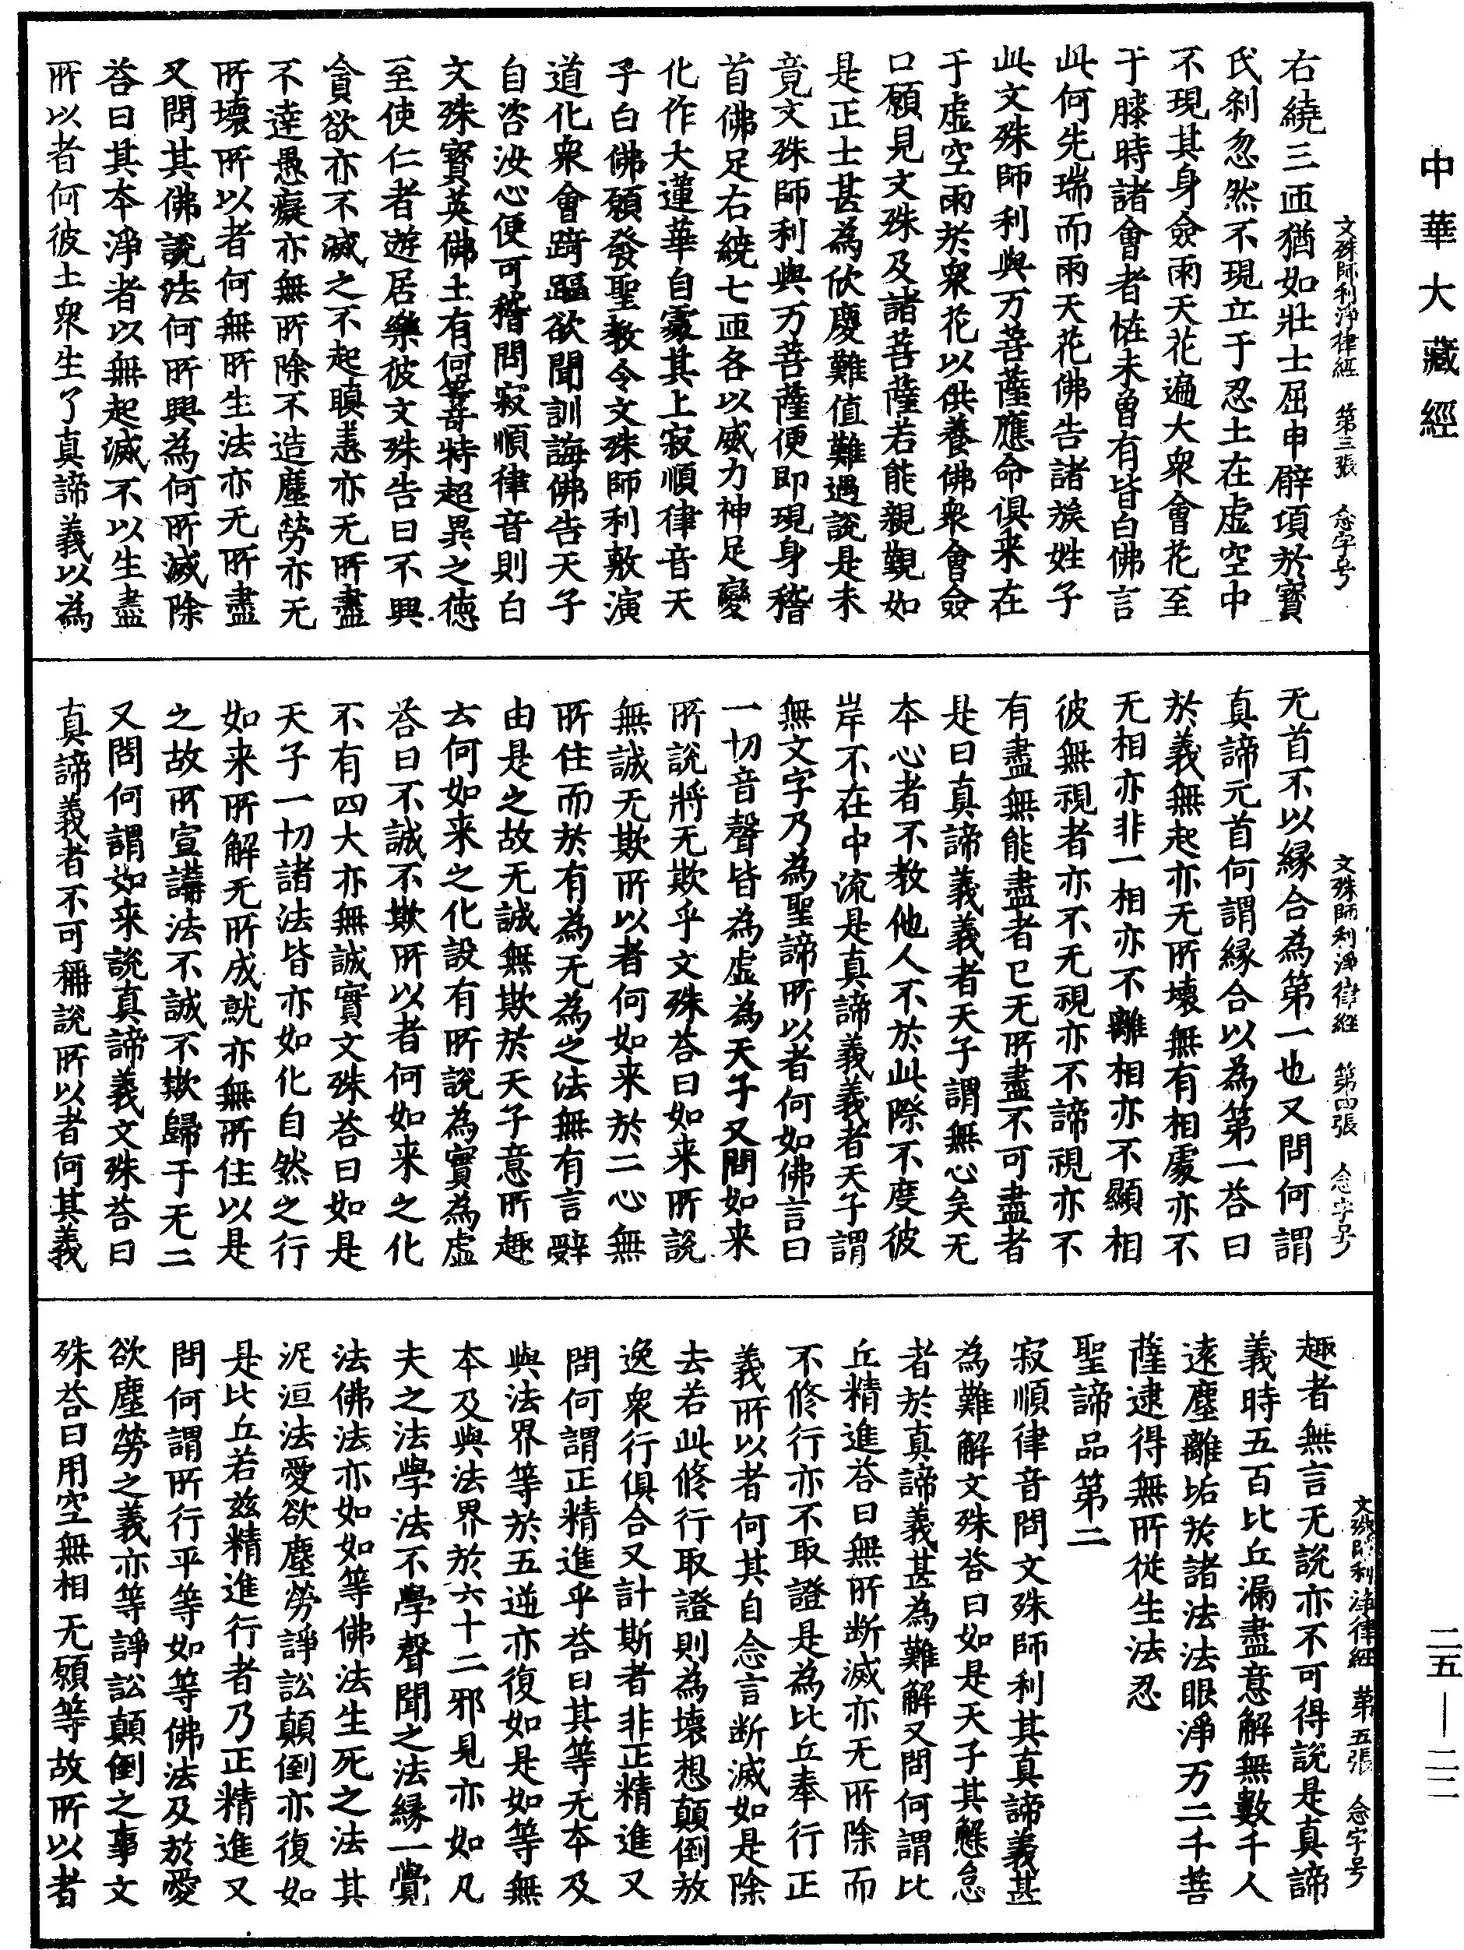 中華大藏經
文殊師利淨律經　第三張　念字号
右繞三匝猶如壯士屈申臂項於寶
氏刹忽然不現立于忍土在虛空中
不現其身僉雨天花遍大衆會花至
于膝時諸會者怪未曾有皆白佛言
此何先瑞而雨天花佛告諸族姓子
此文殊師利與万菩薩應命俱来在
于虛空雨於衆花以供養佛衆會僉
口願見文殊及諸菩薩若能親覲如
是正士甚為欣慶難值難遇說是未
竟文殊師利與万菩薩便即現身稽
首佛足右繞七匝各以威力神足變
化作大蓮華自處其上寂順律音天
子白佛願發聖教令文殊師利敷演
道化衆會踦䟢欲聞訓誨佛告天子
自咨汝心便可稽問寂順律音則白
文殊寶英佛土有何等竒特超異之徳
至使仁者遊居樂彼文殊告曰不興
貪欲亦不滅之不起瞋恚亦无所盡
不達愚癡亦無所除不造塵勞亦无
所壞所以者何無所生法亦无所盡
又問其佛說法何所興為何所滅除
荅曰其本淨者以無起滅不以生盡
所以者何彼土衆生了真諦義以為
文殊師利淨律經　第四張　念字号
无首不以縁合為第一也又問何謂
真諦元首何謂縁合以為第一荅曰
於義無起亦无所壞無有相處亦不
无相亦非一相亦不離相亦不顯相
彼無視者亦不无視亦不諦視亦不
有盡無能盡者已无所盡不可盡者
是曰真諦義義者天子謂無心矣无
本心者不教他人不於此際不度彼
岸不在中流是真諦義義者天子謂
無文字乃為聖諦所以者何如佛言曰
一切音聲皆為虛為天子又問如来
所說將无欺乎文殊荅曰如来所說
無誠无欺所以者何如来於二心無
所住而於有為无為之法無有言辤
由是之故无誠無欺於天子意所趣
云何如来之化設有所說為實為虛
荅曰不誠不欺所以者何如来之化
不有四大亦無誠實文殊荅曰如是
天子一切諸法皆亦如化自然之行
如来所解无所成就亦無所住以是
之故所宣講法不誠不欺歸于无二
又問何謂如来說真諦義文殊荅曰
真諦義者不可稱說所以者何其義
文殊師利淨律經　第五張　念字号
趣者無言无說亦不可得說是真諦
義時五百比丘漏盡意解無數千人
遠塵離垢於諸法法眼淨万二千菩
薩逮得無所從生法忍
聖諦品第二
寂順律音問文殊師利其真諦義甚
為難解文殊荅曰如是天子其懈怠
者於真諦義甚為難解又問何謂比
丘精進荅曰無所断滅亦无所除而
不修行亦不取證是為比丘奉行正
義所以者何其自念言断滅如是除
去若此修行取證則為壞想顛倒放
逸衆行俱合又計斯者非正精進又
問何謂正精進乎荅曰其等无本及
與法界等於五逆亦復如是如等無
本及與法界於六十二邪見亦如凡
夫之法學法不學聲聞之法縁一覺
法佛法亦如如等佛法生死之法其
泥洹法愛欲塵勞諍訟顛倒亦復如
是比丘若兹精進行者乃正精進又
問何謂所行平等如等佛法及於愛
欲塵勞之義亦等諍訟顛倒之事文
殊荅曰用空無相无願等故所以者
二五—二二